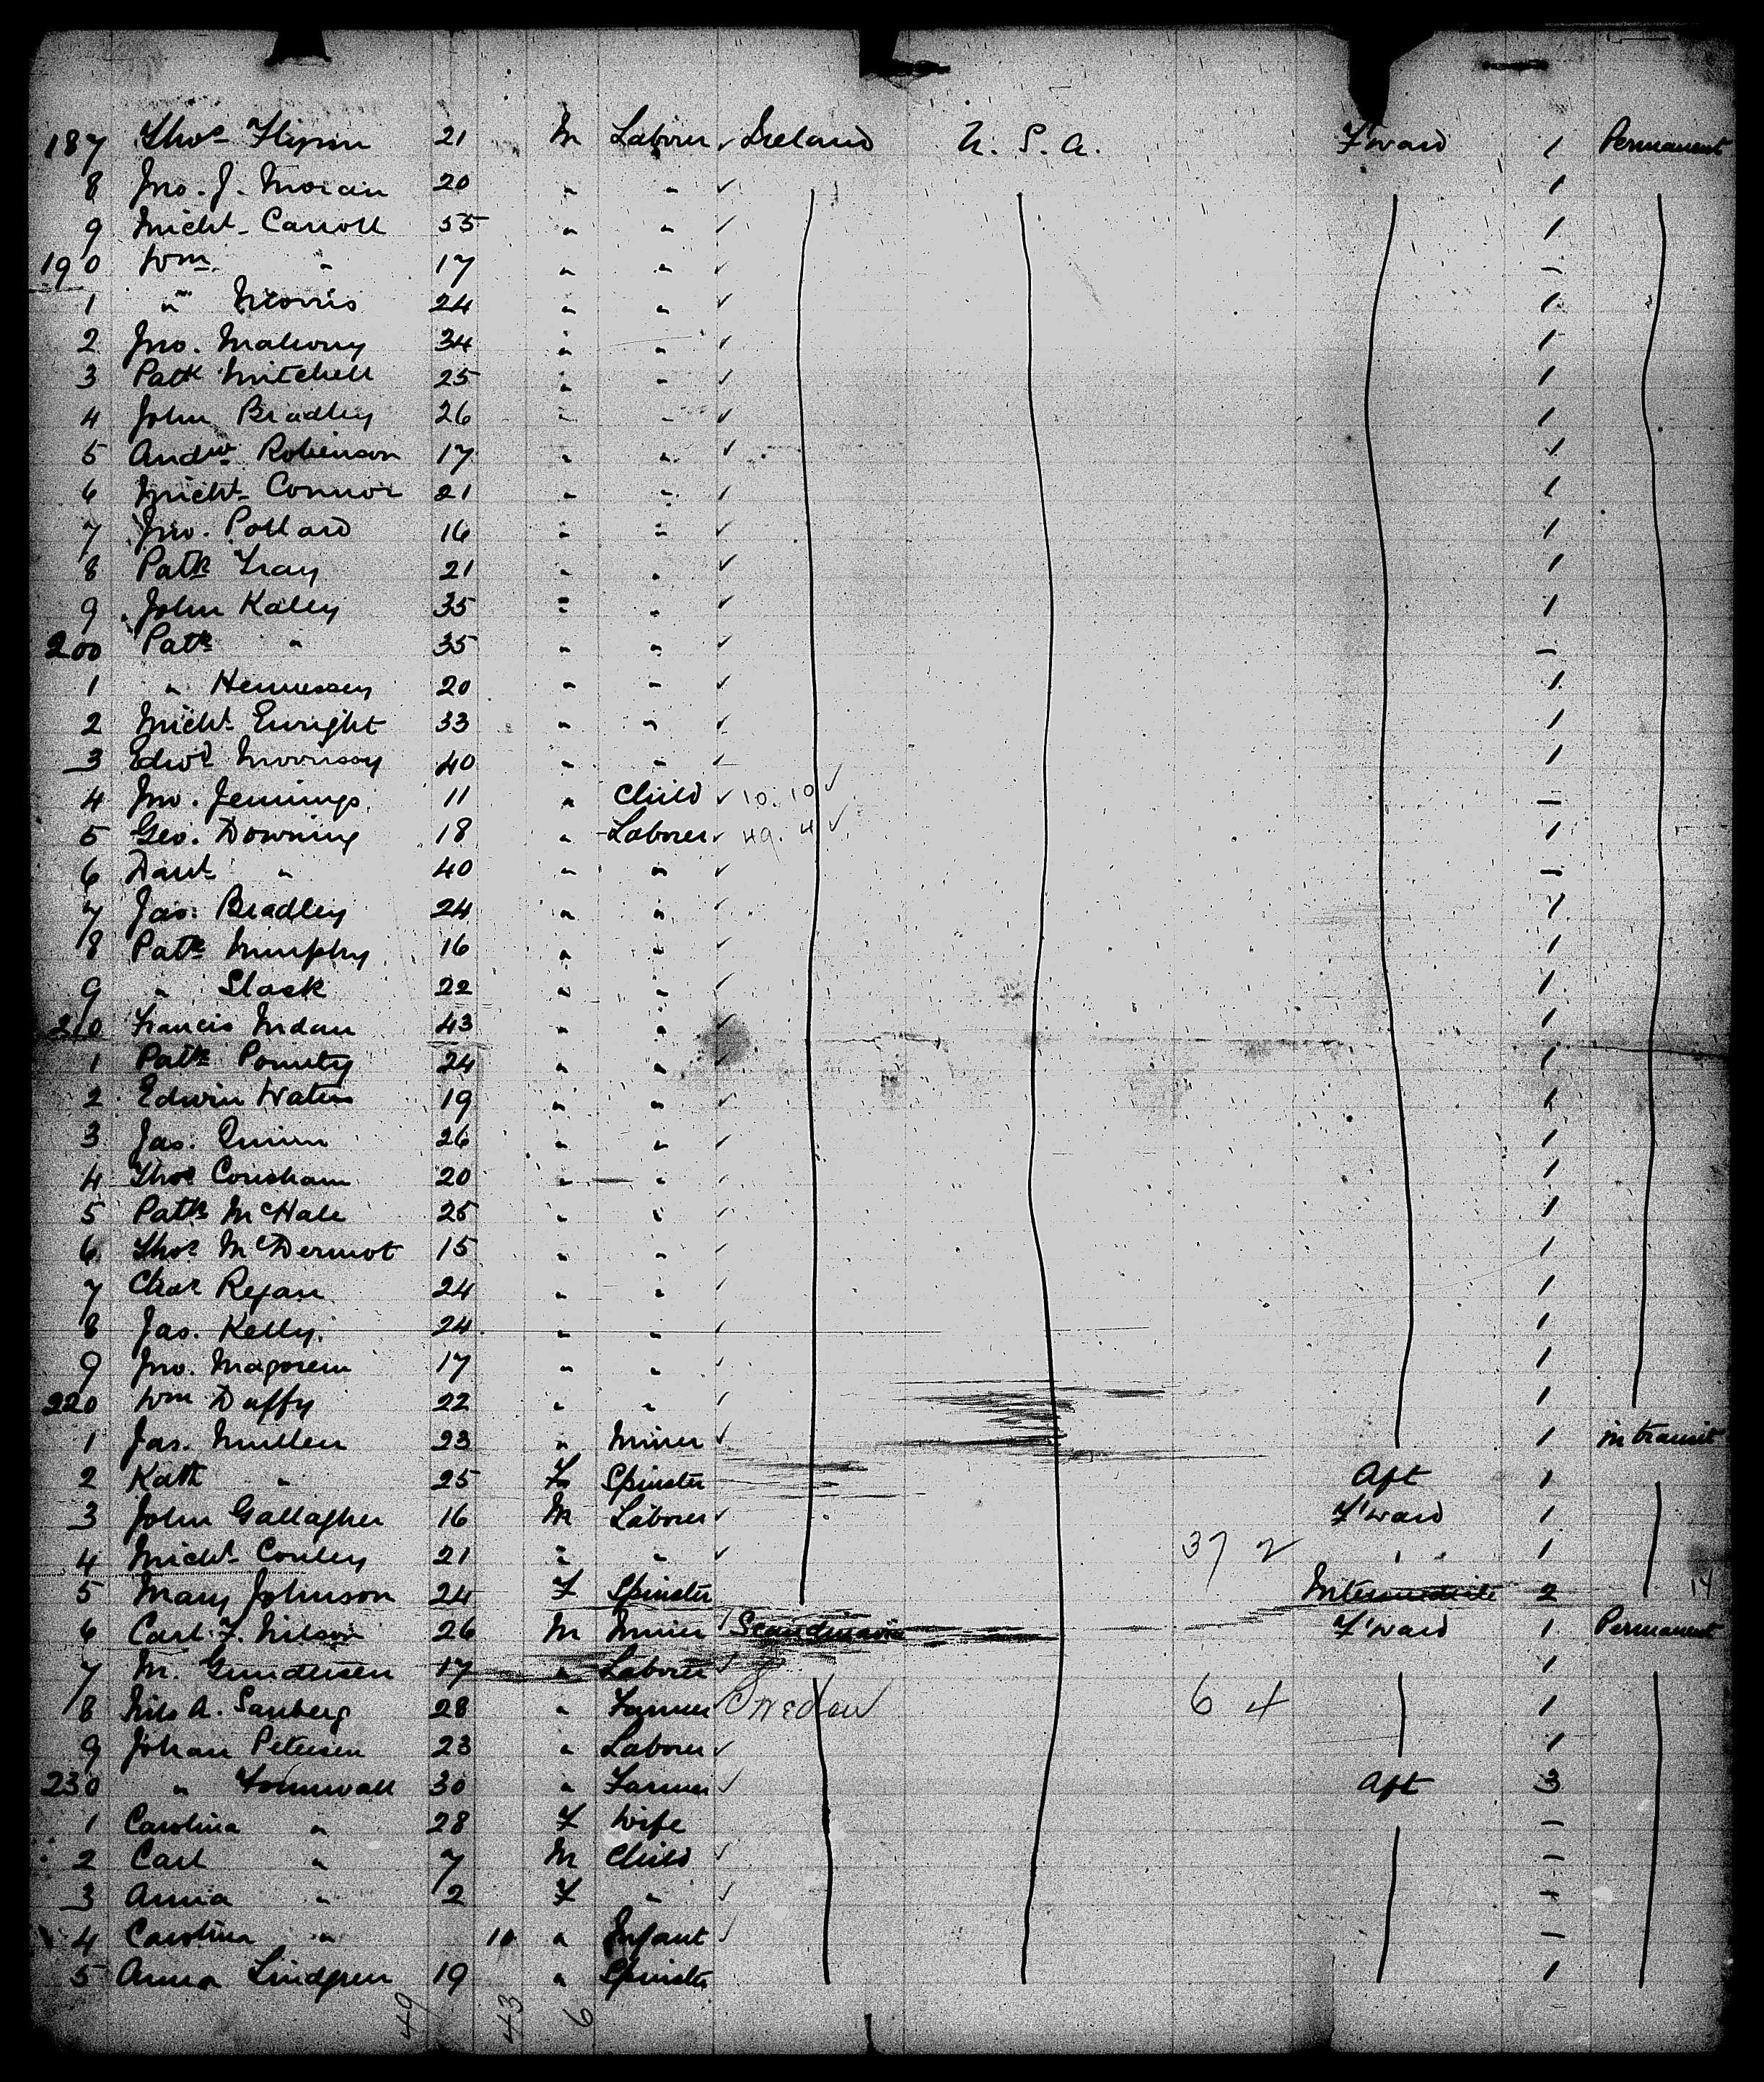 187 Thos Flynn 21 M Laborer ✓ Ireland U. S. A. F'ward 1 Permanent
8 Jno. J. Moran 20 " " ✓ 1
9 Michl Carroll 55 " " ✓ 1
190 Wm " 17 " " ✓ –
1 " Morris 24 " " ✓ 1
2 Jno. Mahony 34 " " ✓ 1
3 Patk Mitchell 25 " " ✓ 1
4 John Bradley 26 " " ✓ 1
5 Andw Robinson 17 " " ✓ 1
6 Michl Connor 21 " " ✓ 1
7 Jno. Pollard 16 " " ✓ 1
8 Patk 21 " " ✓ 1
9 John Kaley 35 " " ✓ 1
200 Patk " 35 " " ✓ –
1 " Hennessey 20 " " ✓ 1
2 Michl Enright 33 " " ✓ 1
3 Edwd Morrissy 40 " " ✓ 1
4 Jno. Jennings 11 " Child ✓ 10. 10 ✓ –
5 Geo. Downing 18 " Laborer ✓ 49. 4 ✓ 1
6 Danl " 40 " " ✓ –
7 Jas. Bradley 24 " " ✓ 1
8 Patk Murphy 16 " " ✓ 1
9 " Slack 22 " " ✓ 1
210 Francis 43 " " ✓ 1
1 Patk 24 " " ✓ 1
2 Edwin Waters 19 " " ✓ 1
3 Jas. Quinn 26 " " ✓ 1
4 Thos 20 " " ✓ 1
5 Patk McHale 25 " " ✓ 1
6 Thos McDermot 15 " " ✓ 1
7 Chas Regan 24 " " ✓ 1
8 Jas. Kelly 24 " " ✓ 1
9 Jno. 17 " " ✓ 1
220 Wm Duffy 22 " " ✓ 1
1 Jas. Mullen 23 " Miner ✓ 1 in transit
2 Kath " 25 F Spinster Aft 1
3 John Gallagher 16 M Laborer ✓ F'ward 1
4 Michl Conley 21 " " ✓ 37 2 " 1
5 Mary Johnson 24 F Spinster Intermediate 2 14
6 Carl F. Nilson 26 M Miner ✓ Scandinavia F'ward 1 Permanent
7 M. Gundersen 17 " Laborer ✓ 1
8 Nils A. Sanberg 28 " Farmer ✓ Sweden 6 4 1
9 Johan Petersen 23 " Laborer ✓ 1
230 " 30 " Farmer ✓ Aft 3
1 Carolina " 28 F Wife –
2 Carl " 7 M Child ✓ –
3 Anna " 2 F " ✓ –
4 Carolina " 10 " Infant ✓ –
5 Anna Lindgren 19 " Spinster 1
49 43 6